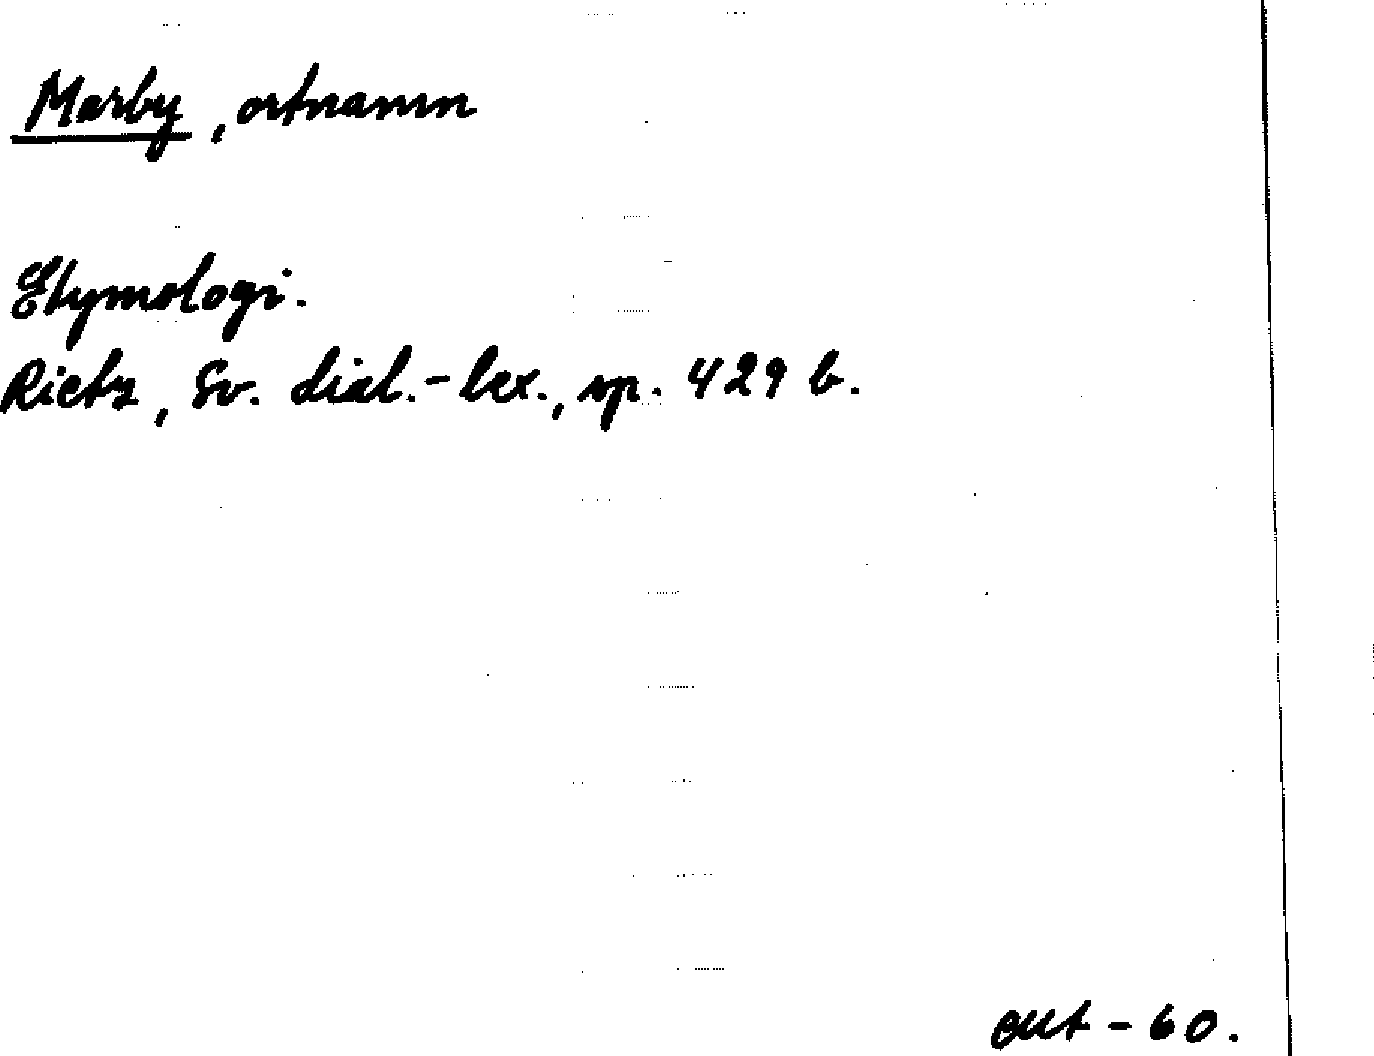 Marby, ortnamn
Etymologi.
Rietz, Sv. dial.-lex., sp. 429 b.
okt - 60.